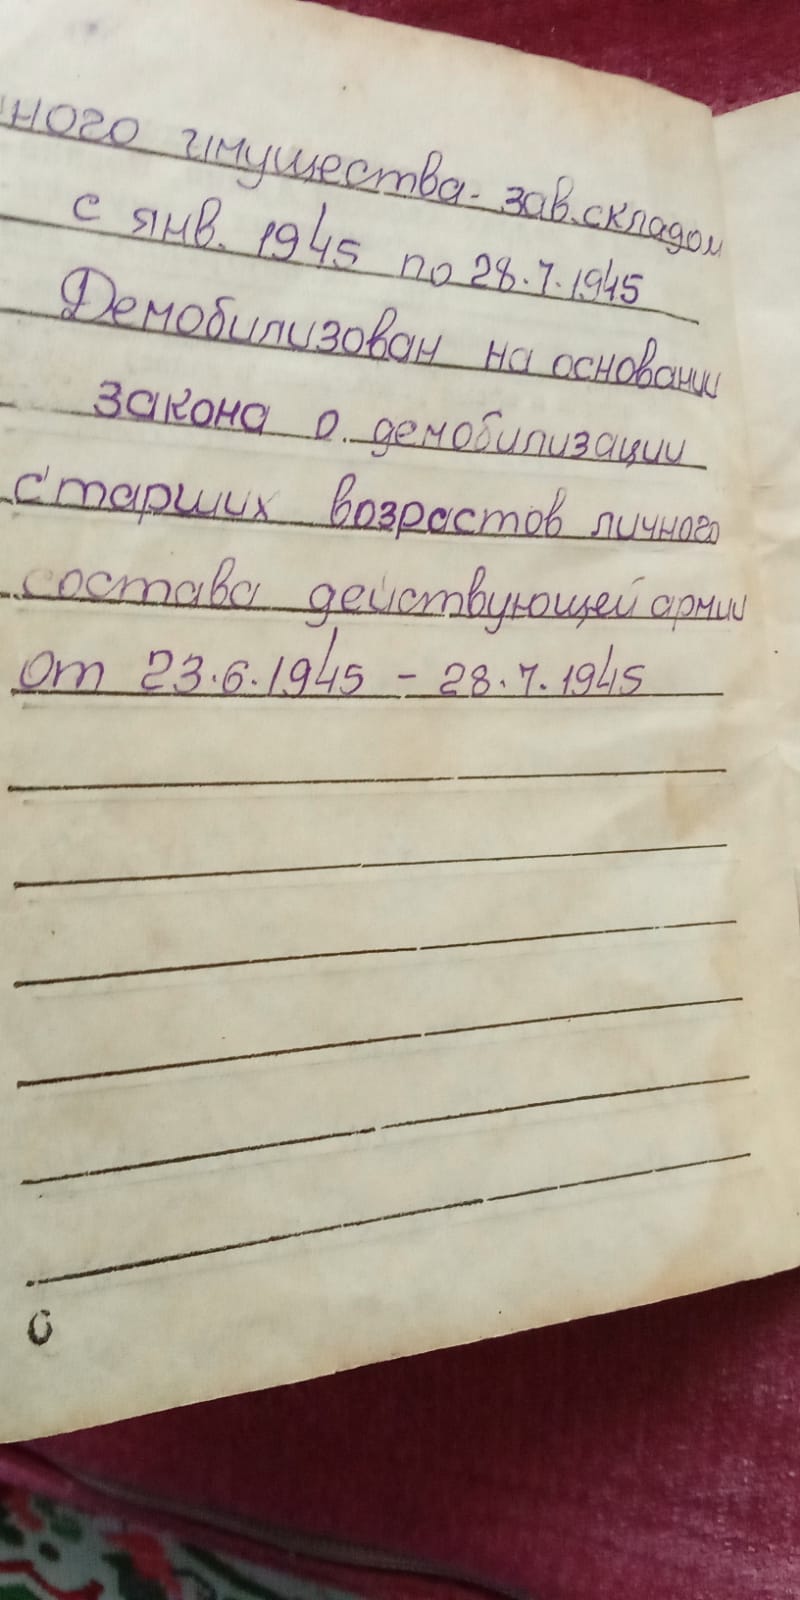 ного имущества - зав. складом
с янв. 1945 по 28.7.1945
Демобилизован на основании
закона о демобилизации
старших возрастов личного
состава действующей армии
от 23.6.1945 - 28.7.1945
6